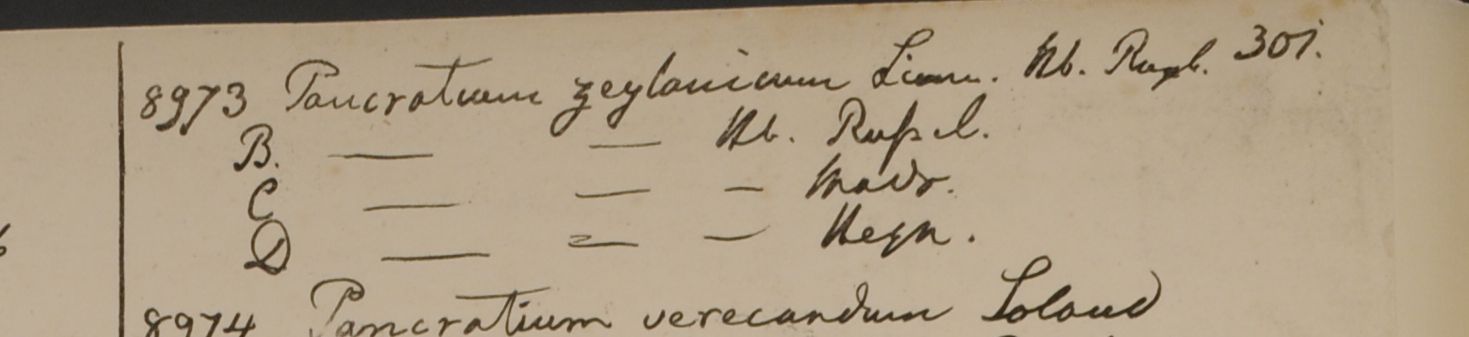 8973 Pancratium zeylanicum Linn. Hb. Roxb. 301.
B. — — Hb. Rußel.
C — — — Madr.
D — = — Heyn.
8974 Pancratium verecundum Soland